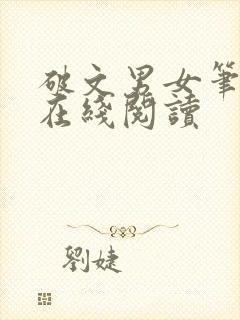 破文男女筆
在綫閱讀
劉婕